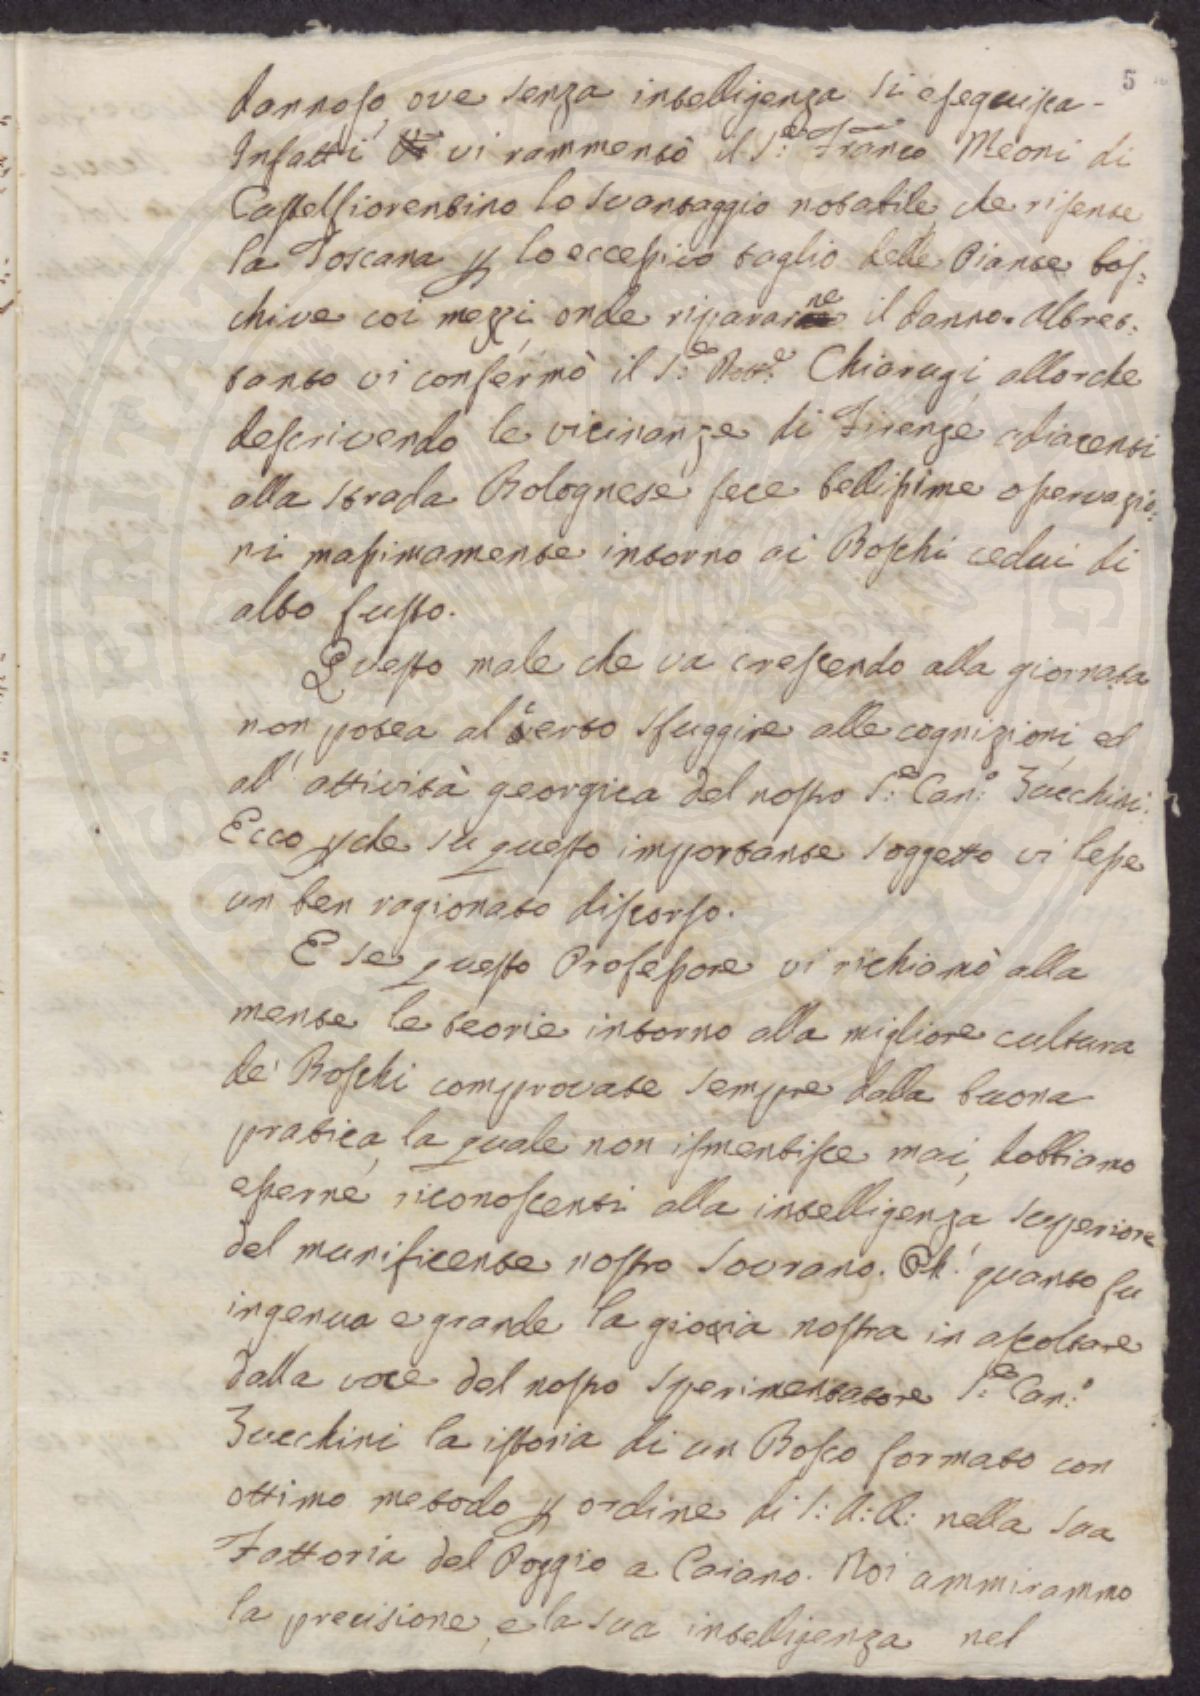 5
dannoso, ove senza intelligenza si eseguisca.
Infatti vi rammentò il S.e Franco Meoni di
Castelfiorentino lo svantaggio notabile, che risente
la Toscana p lo eccessivo taglio delle Piante bos=
chive coi mezzi onde ripararne il danno. Altret=
tanto vi confermò il S.e Dott.e Chiarugi, allorche
descrivendo le vicinanze di Firenze adiacenti
alla strada Bolognese, fece bellissime osservazio=
ni massimamente intorno ai Boschi cedui di
alto fusto.
Questo male che va crescendo alla giornata
non potea al certo sfuggire alle cognizioni, ed
all' attività georgica del nostro S.e Can.o Zucchini.
Ecco pche su questo importante soggetto vi lesse
un ben ragionato discorso.
E se questo Professore vi richiamò alla
mente le teorie intorno alla migliore cultura
de' Boschi comprovate sempre dalla buona
pratica, la quale non ismentisce mai, dobbiamo
esserne riconoscenti alla intelligenza superiore
del munificente nostro Sovrano. Oh! quanto fu
ingenua e grande la gioia nostra in ascoltare
dalla voce del nostro Sperimentatore S.e Can.o
Zucchini la istoria di un Bosco formato con
ottimo metodo p ordine di S: A: R: nella sua
Fattoria del Poggio a Caiano. Noi ammirammo
la precisione, e la sua intelligenza nel